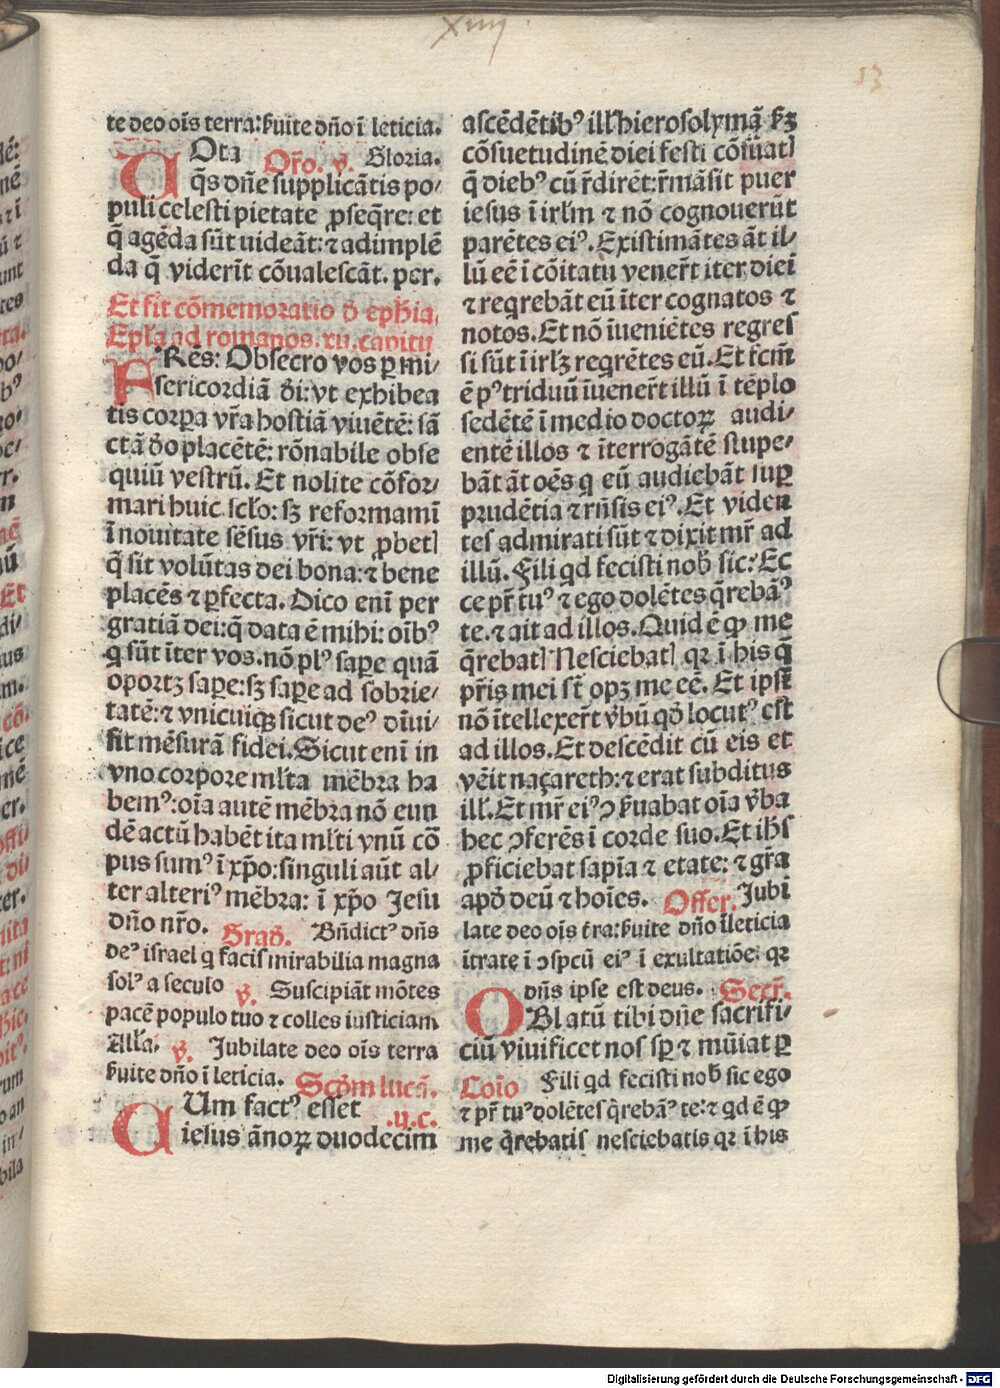 xiiij
13
te deo oīs terra: ẜuite dño ī leticia.
Ota Oŕo. v̇. Gloria.
V q̄s dñe supplicātis po/
puli celesti pietate ꝓseq̄re: et
q̄ agēda sūt uideāt: ⁊ adimplē
da q̄ viderīt cōualescāt. per.
Et fit cōmemoratio ð eph̄ia.
Epl̄a ad romanos. xii. capitu
FRēs: Obsecro vos ꝑ mi/
sericordiā ði: vt exhibea
tis corꝑa vr̄a hostiā viuētē: sā
ctā ðo placētē: rōnabile obse
quiū vestrū. Et nolite cōfor/
mari huic scl̄o: sꝫ reformamī
ī nouitate sēsus vr̄i: vt ꝓbetꝭ
q̄ sit volūtas dei bona: ⁊ bene
placēs ⁊ ꝑfecta. Dico enī per
gratiā dei: q̄ data ē mihi: oībꝰ
q sūt īter vos. nō plꝰ saꝑe quā
oportꝫ saꝑe: sꝫ saꝑe ad sobrie/
tatē: ⁊ vnicuiqꝫ sicut deꝰ diui/
sit mēsurā fidei. Sicut enī in
vno corpore ml̄ta mēbra ha
bemꝰ: oīa autē mēbra nō eun
dē actū habēt ita ml̄ti vnū cō
pus sumꝰ ī xp̄o: singuli aūt al/
ter alteriꝰ mēbra: ī xp̄o Jesu
dño nr̄o. Grað. Bñdictꝰ dñs
deꝰ israel q facis mirabilia magna
solꝰ a seculo v̇. Suscipiāt mōtes
pacē populo tuo ⁊ colles iusticiam
Alla. v̇. Jubilate deo oīs terra
ẜuite dño ī leticia. Scðm lucā.
CUm factꝰ esset .ij.c.
iesus ānoꝝ duodecim
ascēdētibꝰ ill̄ hierosolymā ẜꝫ
cōsuetudinē diei festi cōsūatꝭ
q̄ diebꝰ cū r̄dirēt: r̄māsit puer
iesus ī irl̄m ⁊ nō cognouerūt
parētes eiꝰ. Existimātes āt il/
lū eē ī cōitatu venerr̄t iter diei
⁊ reqrebāt eū īter cognatos ⁊
notos. Et nō īueniētes regres
si sūt ī irl̄ꝫ reqrētes eū. Et fcm̄
ē pꝰ triduū īuener̄t illū ī tēplo
sedētē ī medio doctoꝝ audi/
entē illos ⁊ īterrogātē stupe/
bāt āt oēs q eū audiebāt suꝑ
prudētia ⁊ rn̄sis eiꝰ. Et viden
tes admirati sūt ⁊ dixit mr̄ ad
illū. Fili qd fecisti nob̄ sic: Ec
ce pr̄ tuꝰ ⁊ ego dolētes q̄rebāꝰ
te. ⁊ ait ad illos. Quid ē ꝙ me
q̄rebatꝭ Nesciebatꝭ qꝛ ī his q̄
pr̄is mei st̄ opꝫ me eē. Et ipsi
nō ītellexer̄t v̄bū qð locutꝰ est
ad illos. Et descēdit cū eis et
vēit naçareth: ⁊ erat subditus
ill̄. Et mr̄ eiꝰ ↄẜuabat oīa v̄ba
hec ↄferēs ī corde suo. Et ih̄s
ꝓficiebat sapīa ⁊ etate: ⁊ gr̄a
apð deū ⁊ hoīes. Offer. Jubi
late deo oīs tr̄a: ẜuite dño ī leticia
ītrate ī ↄspcū eiꝰ ī exultatiōe: qꝛ
dñs ipse est deus. Secr̄.
OBlatū tibi dñe sacrifi/
ciū viuificet nos sꝑ ⁊ mūiat ꝑ
Coīo Fili qd fecisti nob̄ sic ego
⁊ pr̄ tuꝰ dolētes q̄rebāꝰ te: ⁊ qd ē ꝙ
me q̄rebatis nesciebatis qꝛ ī his
Digitalisierung gefördert durch die Deutsche Forschungsgemeinschaft - DFG